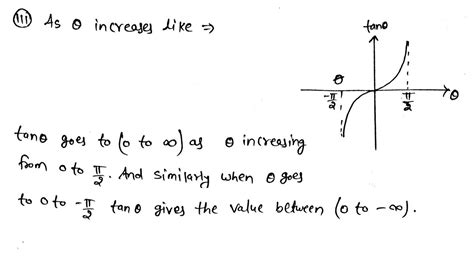 (iii) As θ increases like ⇒
tanθ
θ
-π/2
π/2
θ
tanθ goes to (0 to ∞) as θ increasing
from 0 to π/2. And similarly when θ goes
to 0 to -π/2 tanθ gives the value between (0 to -∞).